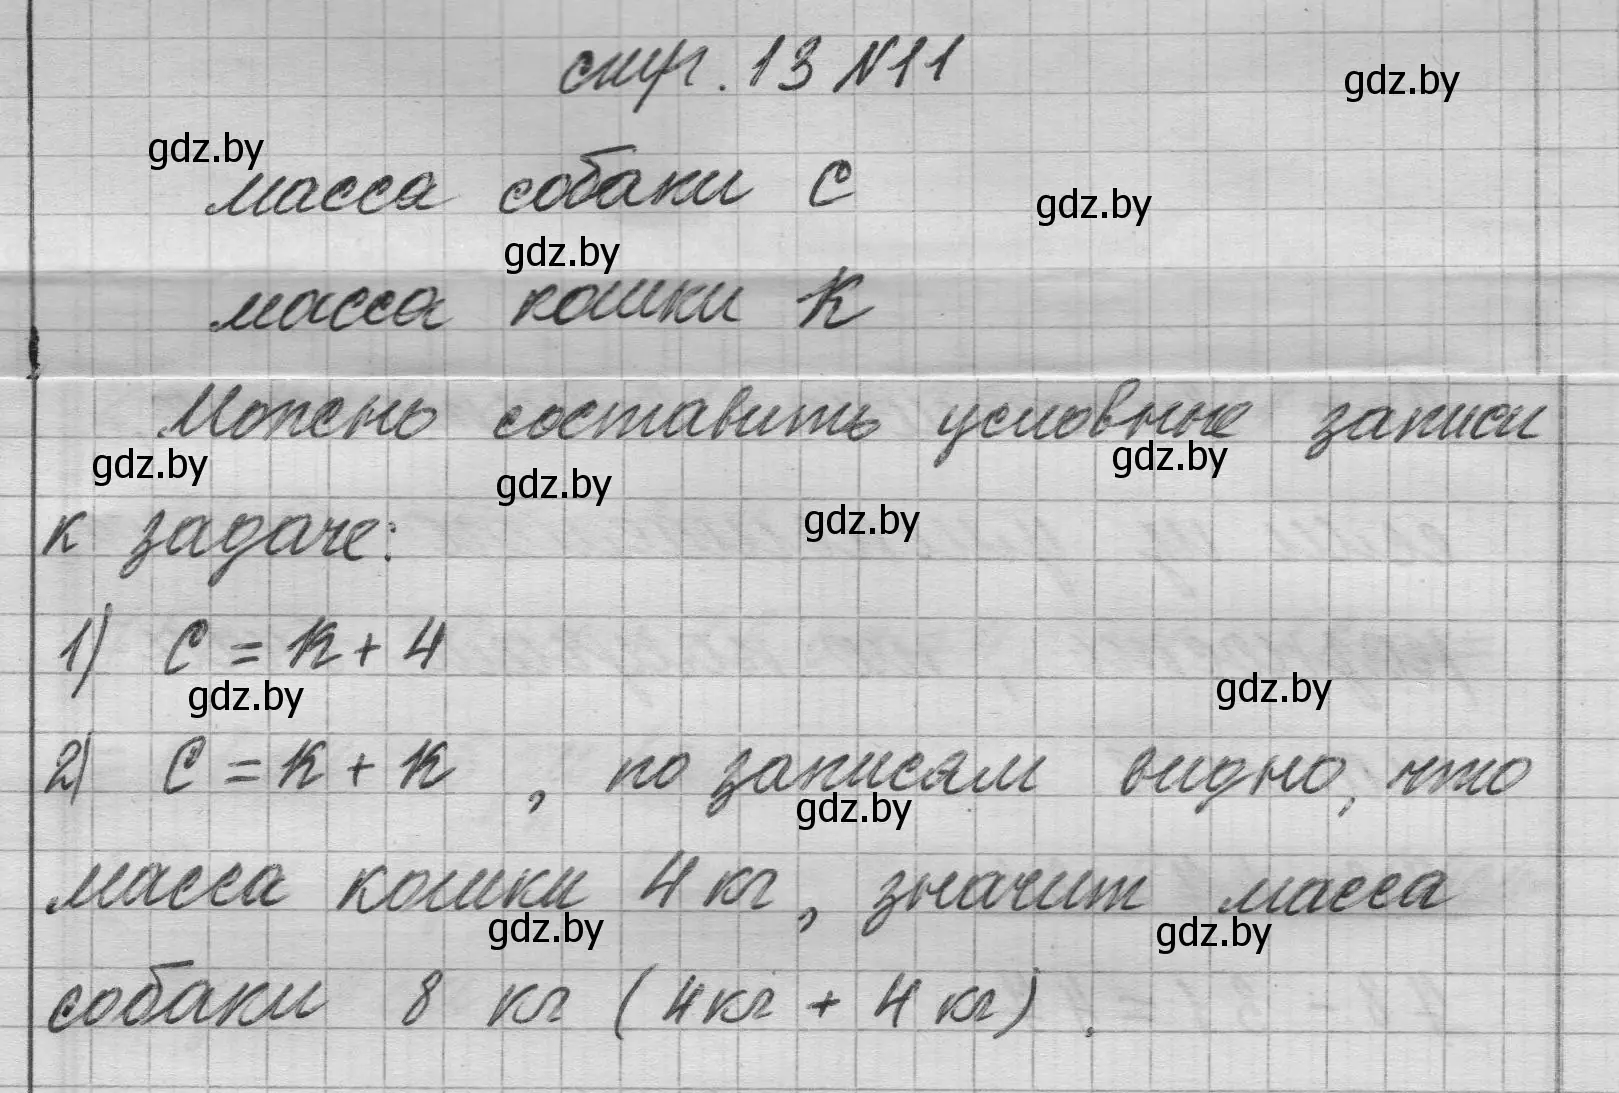 стр. 13 N11
gdz.by
gdz.by
масса собаки С
gdz.by
gdz.by
масса кошки К
Можно составить условные записи
gdz.by
gdz.by
gdz.by
gdz.by
к задаче:
1) С = К + 4
gdz.by
gdz.by
2) С = К + К , по записям видно, что
gdz.by
масса кошки 4 кг, значит масса
gdz.by
gdz.by
собаки 8 кг (4 кг + 4 кг).